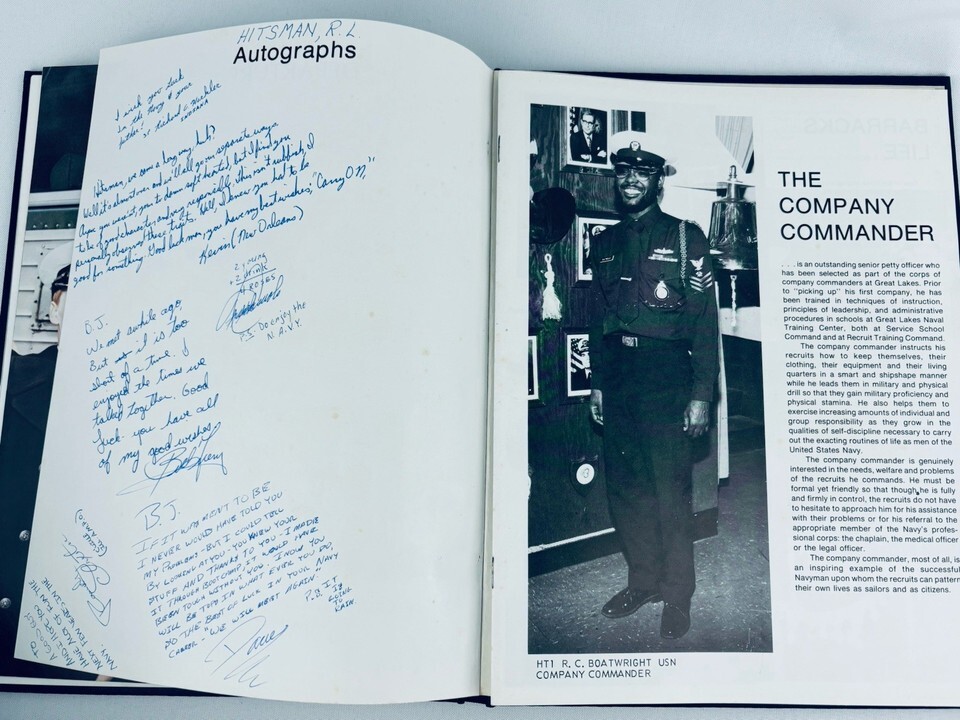 HITSMAN, R. L.
Autographs
I wish you luck
in the Navy & your
Richard C.
INDIANA
Hitsman, we come a long way, huh?
Well it's almost over and we'll all go our separate ways.
to be of good character and very responsible, this isn't
personally observed these traits. Well, I knew you had to be
good for something. Good luck man, you have my best wishes, "Carry On,"
Kevin (New Orleans)
P.S. Do enjoy the
N.A.V.Y.
B.J.
We met awhile ago,
But it is too
short of a time. I
enjoyed the times we
talked together. Good
luck. you have all
of my good wishes
B.J.
IF IT WAS MENT TO BE
I NEVER WOULD HAVE TOLD YOU
MY PROBLEMS - BUT I COULD TELL
BY LOOKING AT YOU - YOU KNEW YOUR
STUFF AND THANKS TO YOU - I MADE
IT THROUGH BOOTCAMP. IT WOULD HAVE
BEEN TOUGH WITHOUT YOU. I KNOW YOU
WILL BE TOPS IN WHAT EVER YOU DO,
SO THE BEST OF LUCK IN YOUR NAVY
CAREER - "WE WILL MEET AGAIN.
Dave
P.S. IT IS
GOING
TO
TO
A GOOD GUY
AND I HOPE YOU
NEXT FEW YEARS IN THE
NAVY.
THE
COMPANY
COMMANDER
. . . is an outstanding senior petty officer who
has been selected as part of the corps of
company commanders at Great Lakes. Prior
to "picking up" his first company, he has
been trained in techniques of instruction,
principles of leadership, and administrative
procedures in schools at Great Lakes Naval
Training Center, both at Service School
Command and at Recruit Training Command.
The company commander instructs his
recruits how to keep themselves, their
clothing, their equipment and their living
quarters in a smart and shipshape manner
while he leads them in military and physical
drill so that they gain military proficiency and
physical stamina. He also helps them to
exercise increasing amounts of individual and
group responsibility as they grow in the
qualities of self-discipline necessary to carry
out the exacting routines of life as men of the
United States Navy.
The company commander is genuinely
interested in the needs, welfare and problems
of the recruits he commands. He must be
formal yet friendly so that though he is fully
and firmly in control, the recruits do not have
to hesitate to approach him for his assistance
with their problems or for his referral to the
appropriate member of the Navy's profes-
sional corps: the chaplain, the medical officer
or the legal officer.
The company commander, most of all, is
an inspiring example of the successful
Navyman upon whom the recruits can pattern
their own lives as sailors and as citizens.
HT1 R. C. BOATWRIGHT USN
COMPANY COMMANDER